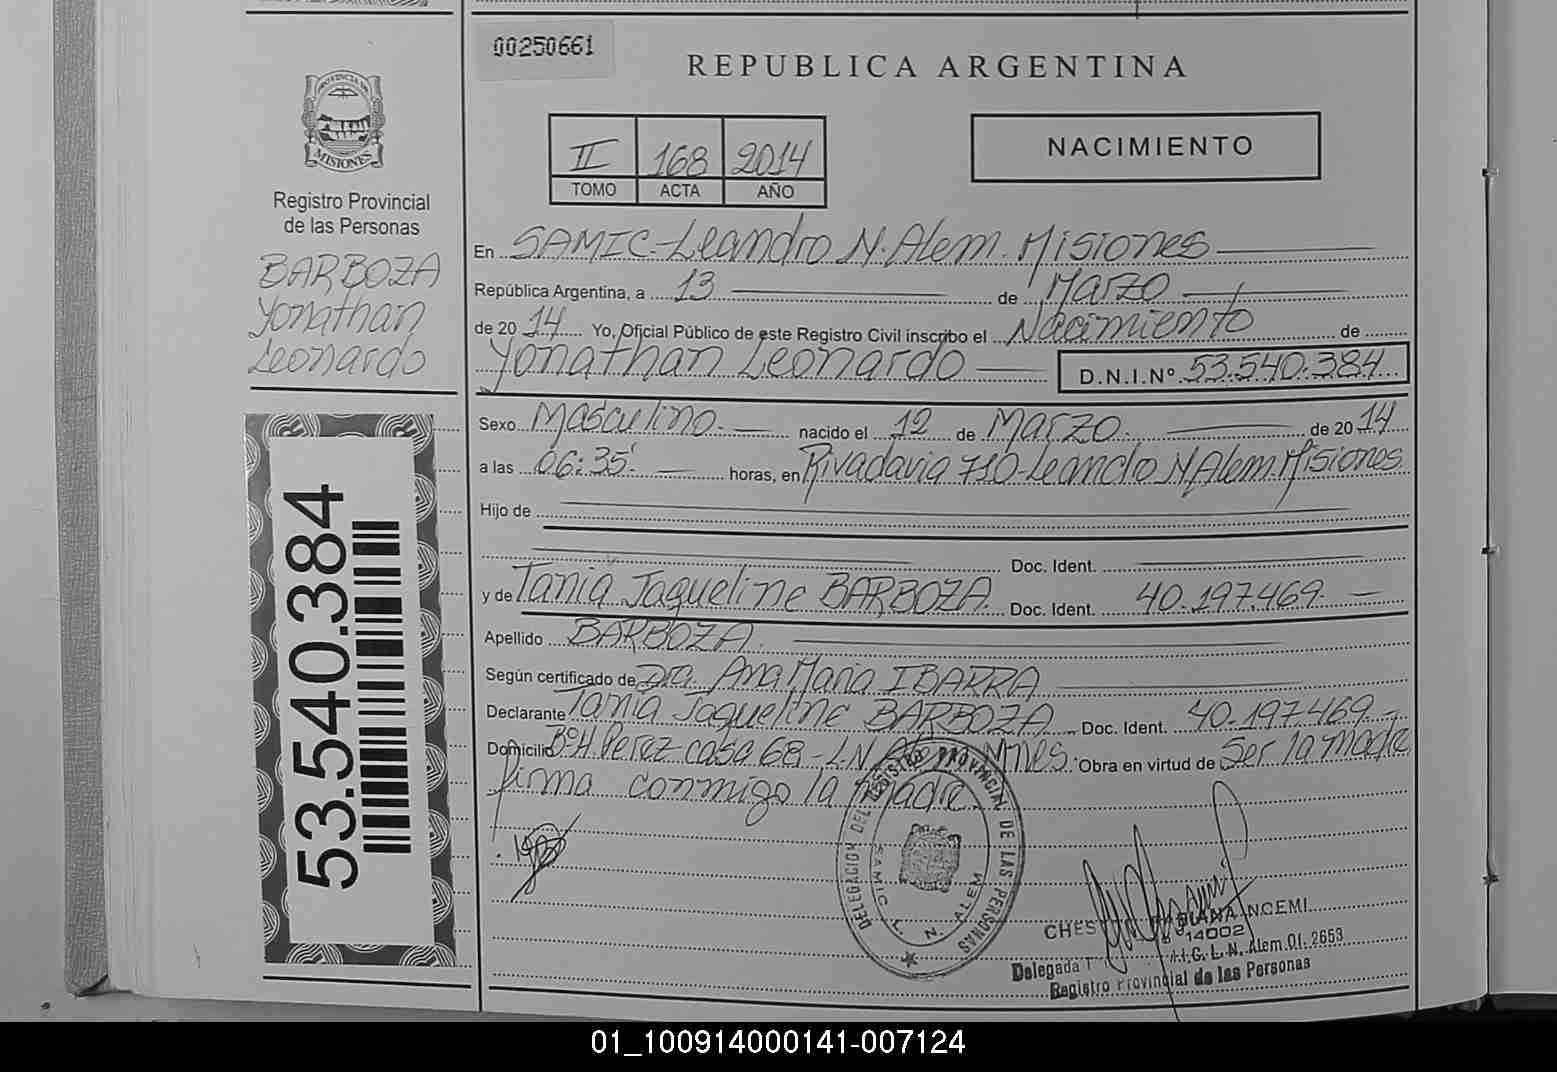 00250661
REPUBLICA ARGENTINA
PROVINCIA DE
MISIONES
Registro Provincial
de las Personas
BARBOZA
Yonathan
Leonardo
53.540.384
II 168 2014
TOMO ACTA AÑO
NACIMIENTO
En SAMIC-Leandro N. Alem. Misiones
República Argentina, a 13 de Marzo
de 20 14 Yo, Oficial Público de este Registro Civil inscribo el Nacimiento de
Yonathan Leonardo D.N.I.Nº 53.540.384
Sexo Masculino. nacido el 12 de Marzo. de 20 14
a las 06:35' horas, en Rivadavia 710-Leandro N Alem. Misiones
Hijo de
Doc. Ident.
y de Tania Jaqueline BARBOZA. Doc. Ident. 40.197.469.
Apellido BARBOZA.
Según certificado de Dra. Ana Maria IBARRA
Declarante Tania Jaqueline BARBOZA Doc. Ident. 40.197.469.-
Domicilio Bº H. Perez casa 68 - L.N. Alem Mnes. Obra en virtud de Ser la madre
firma conmigo la madre.
DELEGACION DEL REGISTRO PROVINCIAL DE LAS PERSONAS
SAMIC L. N. ALEM
NOEMI
14002
L. N. Alem Of. 2653
Delegada
Registro Provincial de las Personas
01_100914000141-007124